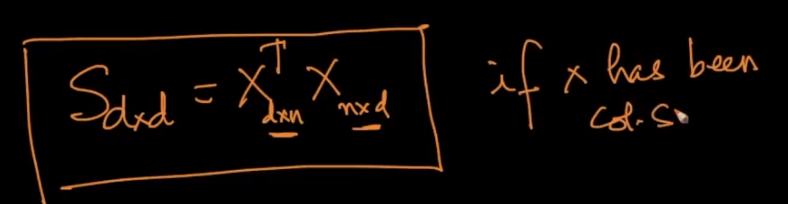 S_{d×d} = X^T_{d×n} X_{n×d}
if x has been
col. S